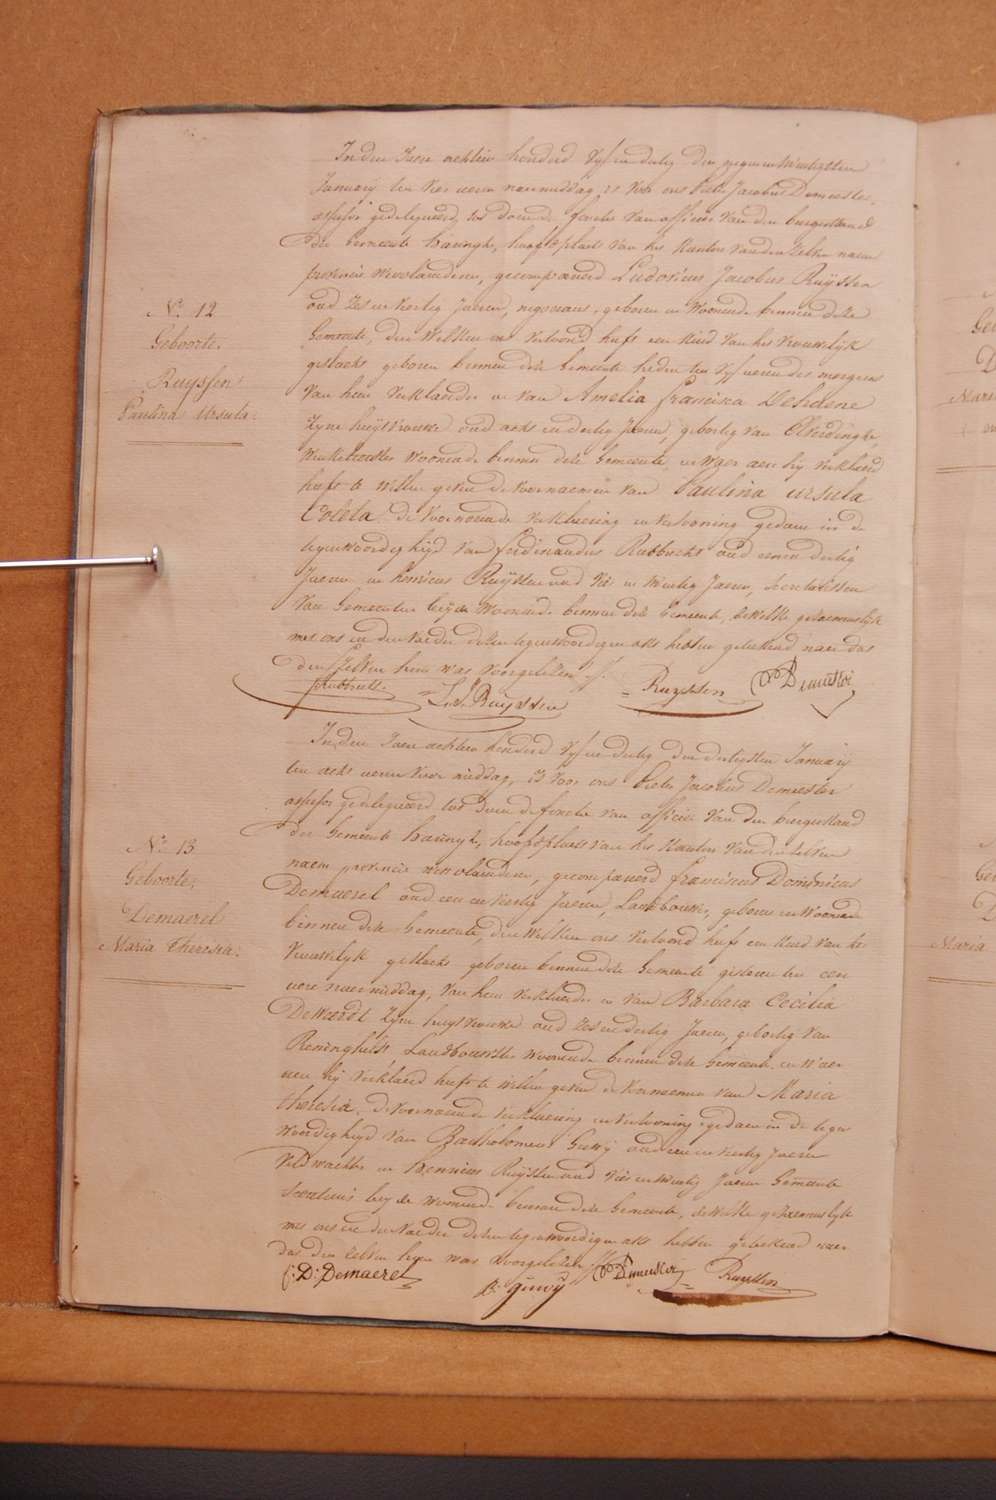 In den Jaere achtien honderd vyf en dertig den negen en twintigsten
January ten vier ueren naermiddag, is voor ons Pieter Jacobus Demeester
assessor gedelegueerd, tot doen de functie van officier van den burgerstand
der Gemeente Haringhe, hoofdplaets van het Kanton van den zelven naem
provincie westvlaenderen, gecompareerd Ludovicus Jacobus Ruyssen
oud zes en veertig Jaeren, negociant, geboren en woonende binnen deze
Gemeente, den welken ons vertoond heeft een kind van het vrouwelyk
geslacht geboren binnen deze Gemeente heden ten vyf ueren des morgens
van hem verklaerder en van Amelia Francisca Desedene
zyne huysvrouwe oud acht en dertig Jaeren, geboortig van Elverdinghe,
winkelierster woonende binnen deze Gemeente, en waer aen hy verklaerd
heeft te willen geven de voornaemen van Paulina Ursula
Coleta. De voornoemde verklaering en vertooning gedaen in de
tegenwoordigheyd van Ferdinandus Rubbrecht oud een en dertig
Jaeren en Henricus Ruyssen oud vier en twintig Jaeren, secretarissen
van Gemeenten beyde woonende binnen deze Gemeente, dewelke gezaementlyk
met ons en den vaeder dezen tegenwoordigen akt hebben geteekend naer dat
den zelven hem was voorgelezen
Rubbrecht L. J. Ruyssen Ruyssen Demeester
N.º 12
Geboorte.
Ruyssen
Paulina Ursula.
In den Jaere achtien honderd vyf en dertig den dertigsten January
ten acht ueren voormiddag, is voor ons Pieter Jacobus Demeester
assessor gedelegueerd tot doen de functie van officier van den burgerstand
der Gemeente Haringhe, hoofdplaets van het Kanton van den zelven
naem provincie westvlaenderen, gecompareerd Franciscus Dominicus
Demaerel oud een en veertig Jaeren, Landbouwer, geboren en woonende
binnen deze Gemeente, den welken ons vertoond heeft een kind van het
vrouwelyk geslacht geboren binnen deze Gemeente gisteren ten een
uere naermiddag, van hem verklaerder en van Barbara Cecilia
Dewaerdt zyne huysvrouwe oud zes en dertig Jaeren, geboortig van
Reninghelst Landbouwster woonende binnen deze Gemeente, en waer
aen hy verklaerd heeft te willen geven de voornaemen van Maria
Theresia. De voornoemde verklaering en vertooning gedaen in de tegen
woordigheyd van Bartholomeus Guwy oud een en veertig Jaeren
veldwachter en Henricus Ruyssen oud vier en twintig Jaeren Gemeente
secretaris beyde woonende binnen deze Gemeente, dewelke gezaementlyk
met ons en den vaeder dezen tegenwoordigen akt hebben geteekend naer
dat den zelven hem was voorgelezen
f: D: Demaerel B. guwy Demeester Ruyssen
N.º 13
Geboorte.
Demaerel
Maria Theresia.
Maria